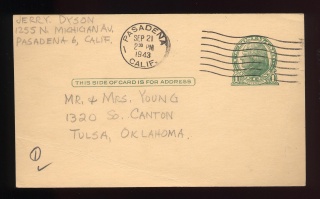 JERRY DYSON
1255 N. MICHIGAN AV.
PASADENA 6, CALIF.
PASADENA
SEP 21
PM
1943
CALIF.
THIS SIDE OF CARD IS FOR ADDRESS
MR. & MRS. YOUNG
1320 SO. CANTON
TULSA, OKLAHOMA.
1